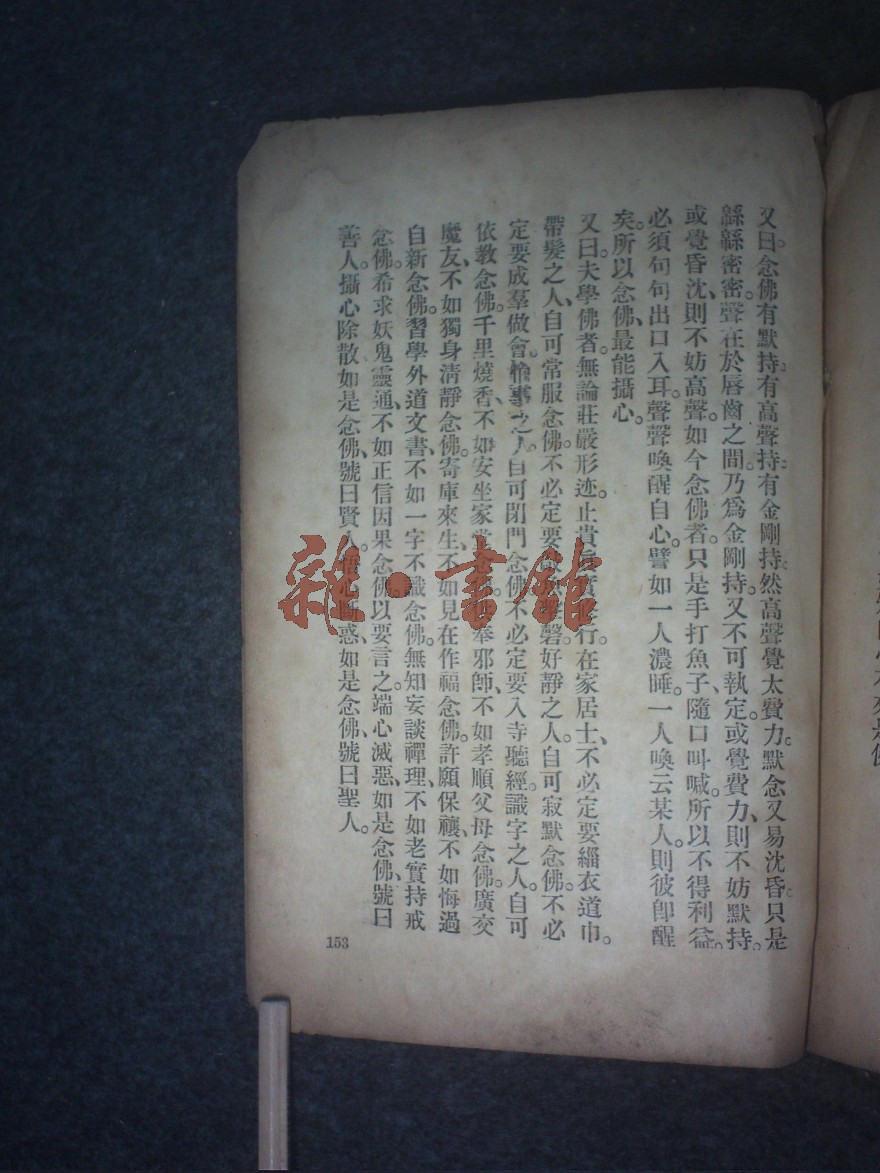 又曰。念佛有默持。有高聲持。有金剛持。然高聲覺太費力。默念又易沈昏。只是
緜緜密密。聲在於唇齒之間。乃爲金剛持。又不可執定。或覺費力、則不妨默持。
或覺昏沈、則不妨高聲。如今念佛者。只是手打魚子、隨口叫喊。所以不得利益。
必須句句出口入耳。聲聲喚醒自心。譬如一人濃睡。一人喚云某人。則彼卽醒
矣。所以念佛、最能攝心。
又曰。夫學佛者。無論莊嚴形迹。止貴 實 行。在家居士、不必定要緇衣道巾。
帶髮之人、自可常服念佛。不必定要 磬。好靜之人。自可寂默念佛。不必
定要成羣做會。怕事之人、自可閉門念佛。不必定要入寺聽經。識字之人。自可
依教念佛。千里燒香、不如安坐家堂念佛。 奉邪師、不如孝順父母念佛。廣交
魔友、不如獨身淸靜念佛。寄庫來生、不如見在作福念佛。許願保禳、不如悔過
自新念佛。習學外道文書、不如一字不識念佛。無知妄談禪理、不如老實持戒
念佛。希求妖鬼靈通、不如正信因果念佛。以要言之。端心滅惡、如是念佛、號曰
善人。攝心除散、如是念佛、號曰賢人。悟心斷惑、如是念佛、號曰聖人。
153
雜·書館